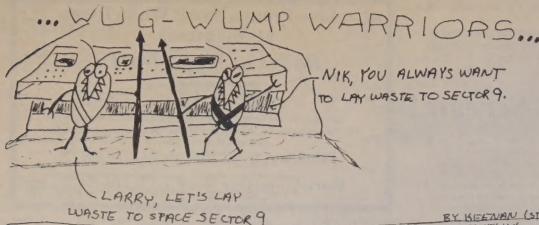 ...WUG-WUMP WARRIORS...
NIK, YOU ALWAYS WANT
TO LAY WASTE TO SECTOR 9.
LARRY, LET'S LAY
WASTE TO SPACE SECTOR 9
BY KEENAN